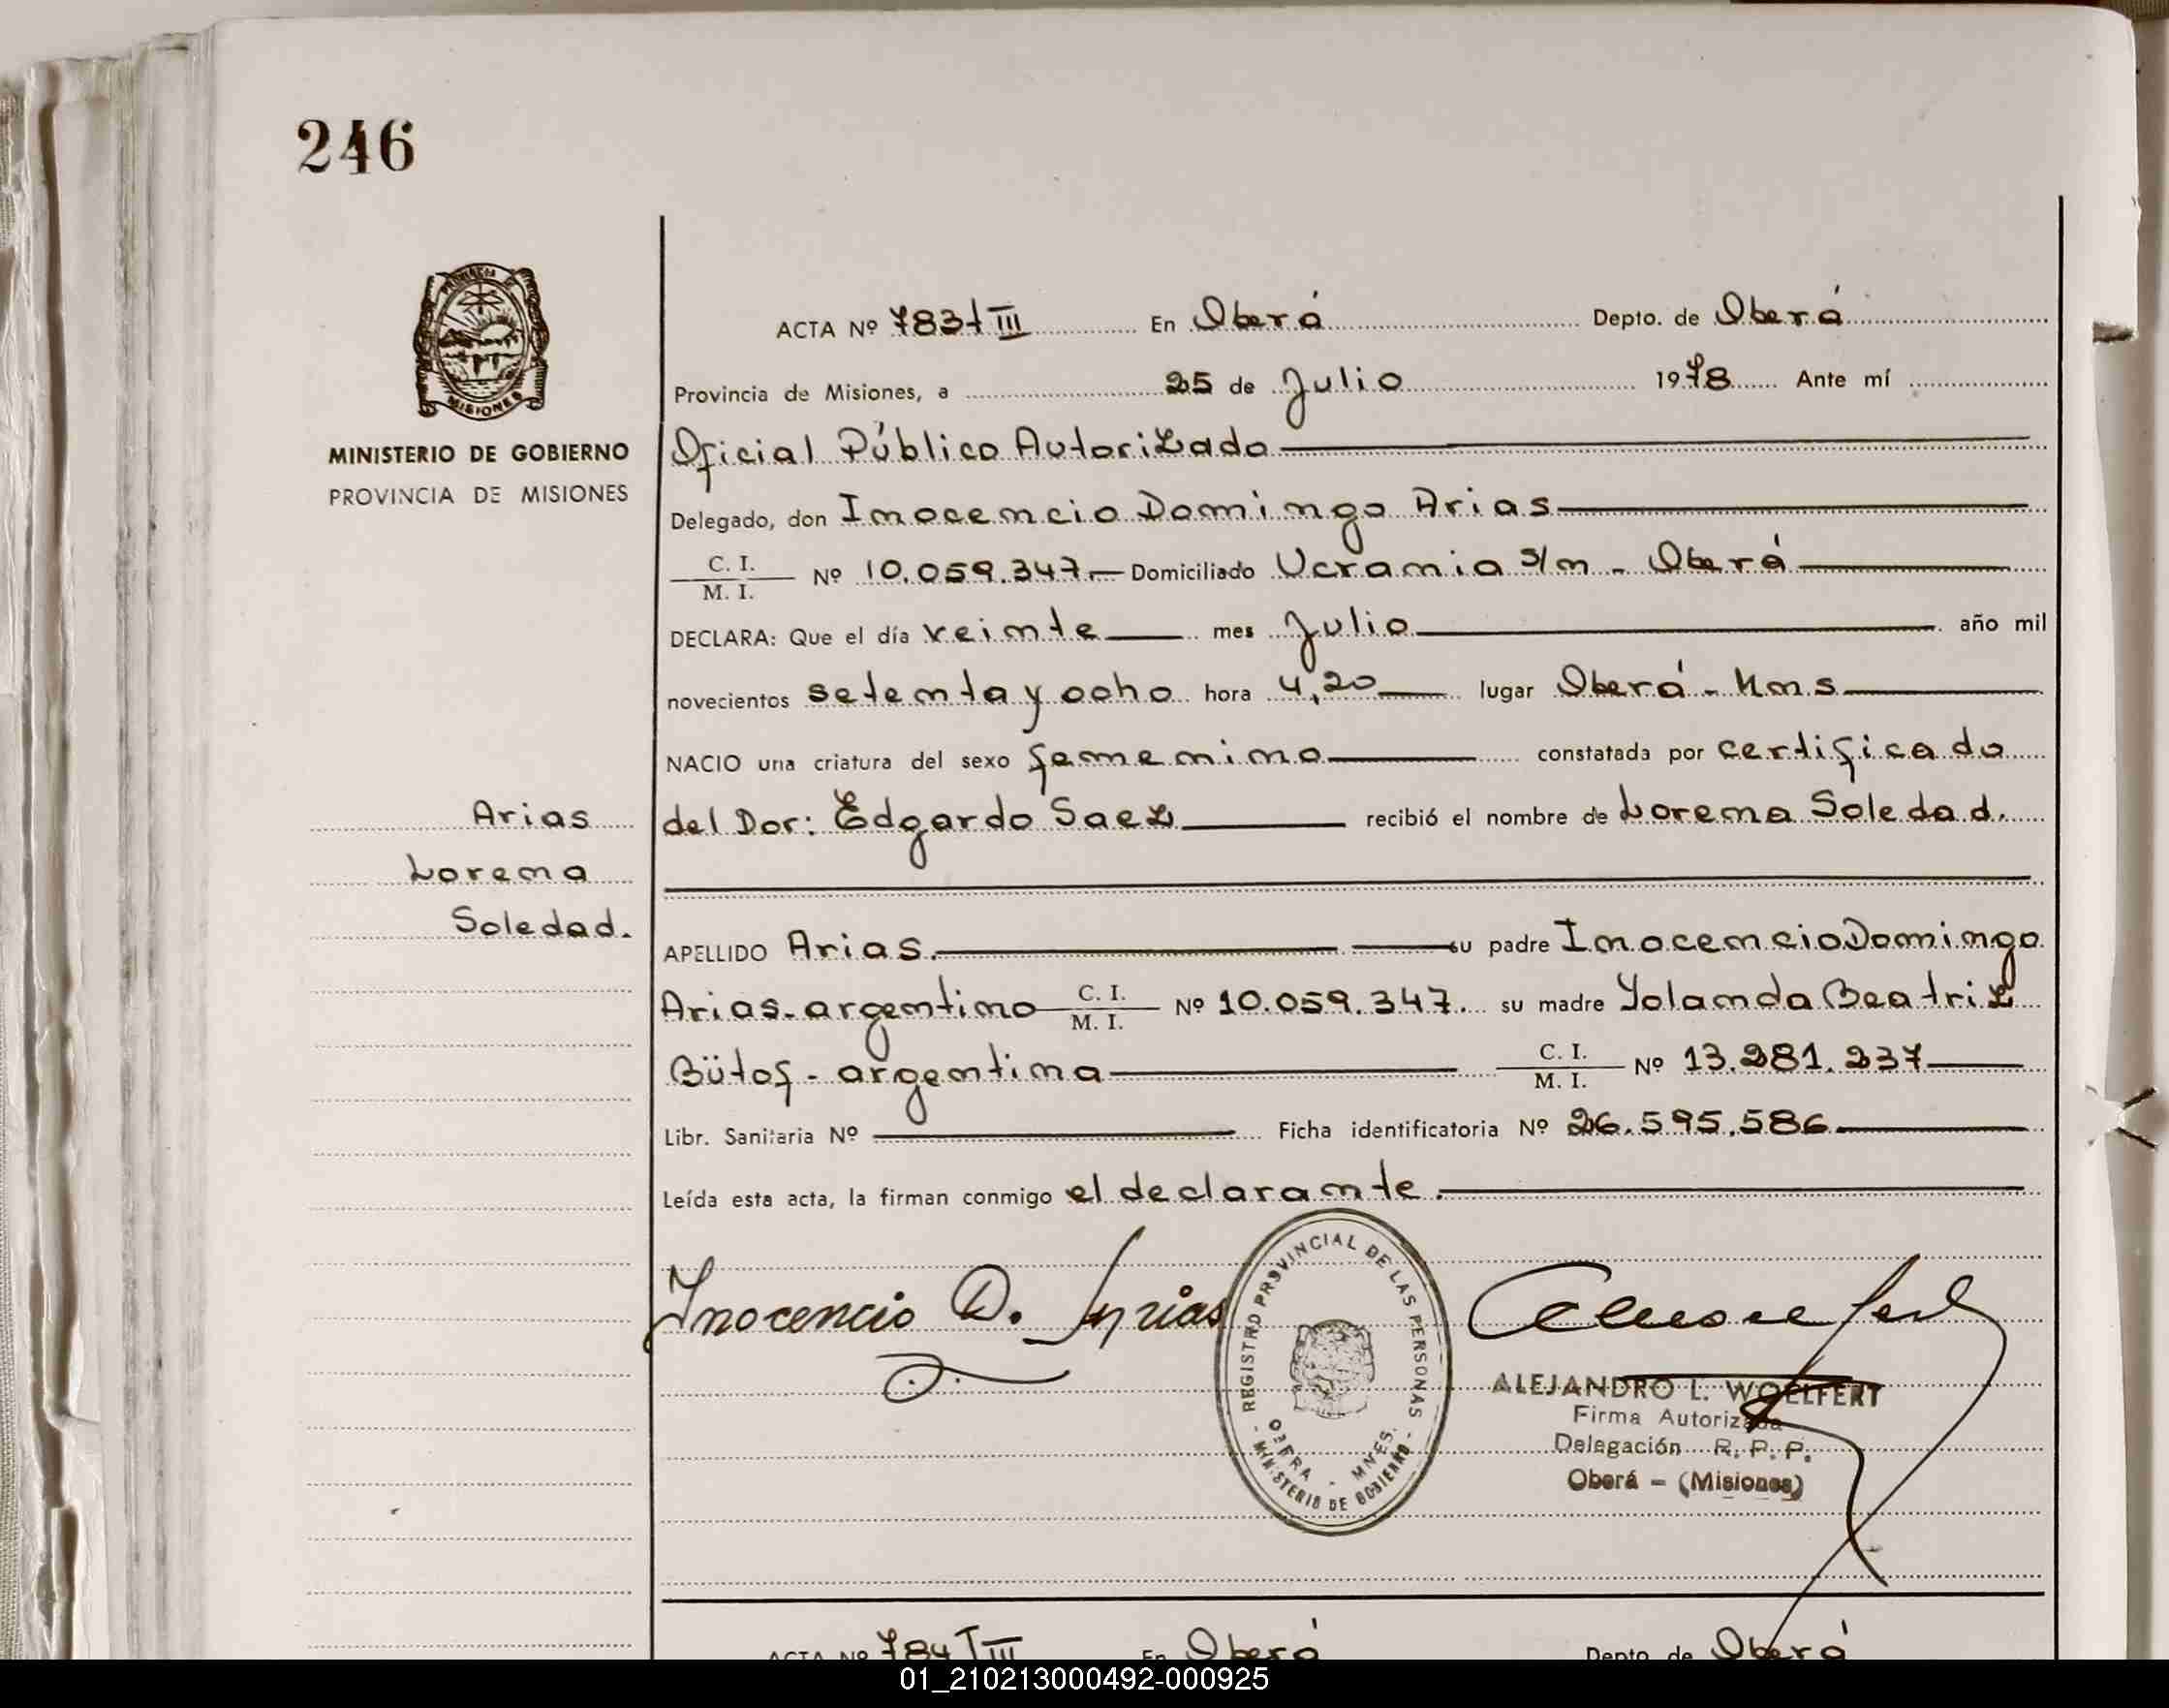 246
PROVINCIA DE
MISIONES
MINISTERIO DE GOBIERNO
PROVINCIA DE MISIONES
ACTA Nº 783 t III En Oberá Depto. de Oberá
Provincia de Misiones, a 25 de Julio 1978 Ante mí
Oficial Público Autorizado
Delegado, don Inocencio Domingo Arias
C. I.
M. I. Nº 10.059.347.- Domiciliado Ucrania s/n - Oberá
DECLARA: Que el día veinte mes Julio año mil
novecientos setenta y ocho hora 4,20 lugar Oberá - Mns
NACIO una criatura del sexo femenino constatada por certificado
del Dor: Edgardo Saez recibió el nombre de Lorena Soledad.
Arias
Lorena
Soledad.
APELLIDO Arias. su padre Inocencio Domingo
Arias - argentino C. I.
M. I. Nº 10.059.347. su madre Yolanda Beatriz
Bütof - argentina C. I.
M. I. Nº 13.281.237
Libr. Sanitaria Nº Ficha identificatoria Nº 26.595.586
Leída esta acta, la firman conmigo el declarante.
Inocencio D. Arias
REGISTRO PROVINCIAL DE LAS PERSONAS
OBERA - MNES.
- MINISTERIO DE GOBIERNO -
ALEJANDRO L. WOELFERT
Firma Autorizada
Delegación R. P. P.
Oberá - (Misiones)
ACTA Nº 784 T III En Oberá Depto. de Oberá
01_210213000492-000925